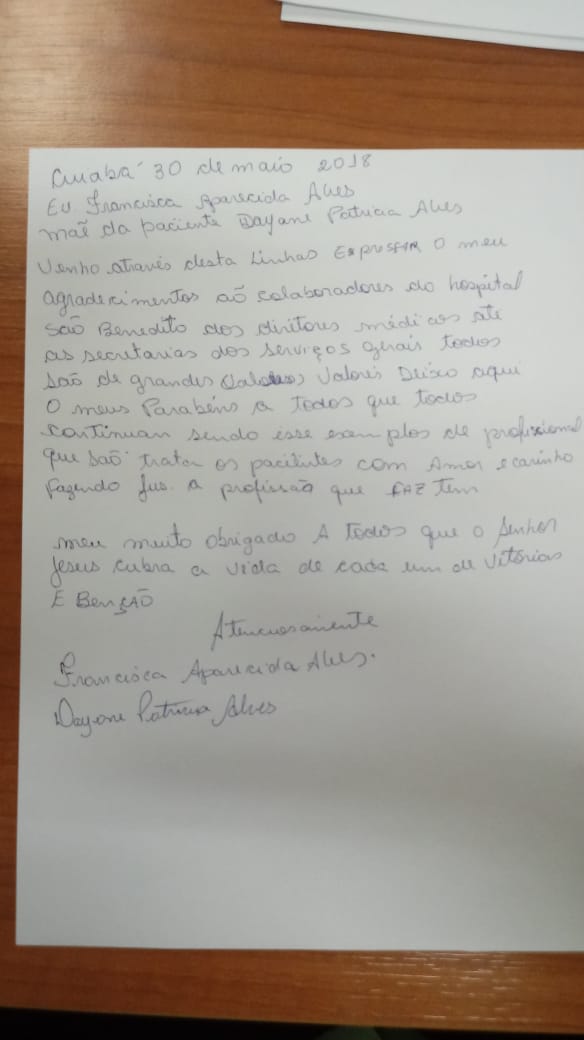 Cuiabá 30 de maio 2018
Eu Francisca Aparecida Alves
mãe da paciente Dayane Patricia Alves
Venho através desta Linhas Expressar o meu
agradecimentos aõ colaboradores do hospital
São Benedito dos diretores médicos até
as secretarias dos serviços gerais todos
São de grandes Valores Deixo aqui
O meus Parabéns a Todos que todos
continuan sendo esse exemplos de profissional
que são tratar os paciientes com Amor e carinho
fazendo jus a profissão que FAZ Tem
meu muito obrigado A todos que o Senhor
Jesus cubra a vida de cada um de Vitórias
E BençÃO
Atenciosamente
Francisca Aparecida Alves.
Dayane Patricia Alves